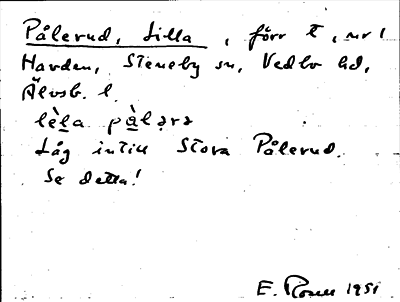 Pålerud, Lilla, förr t, nr 1
Havden, Steneby sn, Vedbo hd,
Älvsb. l.
lèla pàlərə
Låg intill Stora Pålerud.
Se detta!
E. 1951